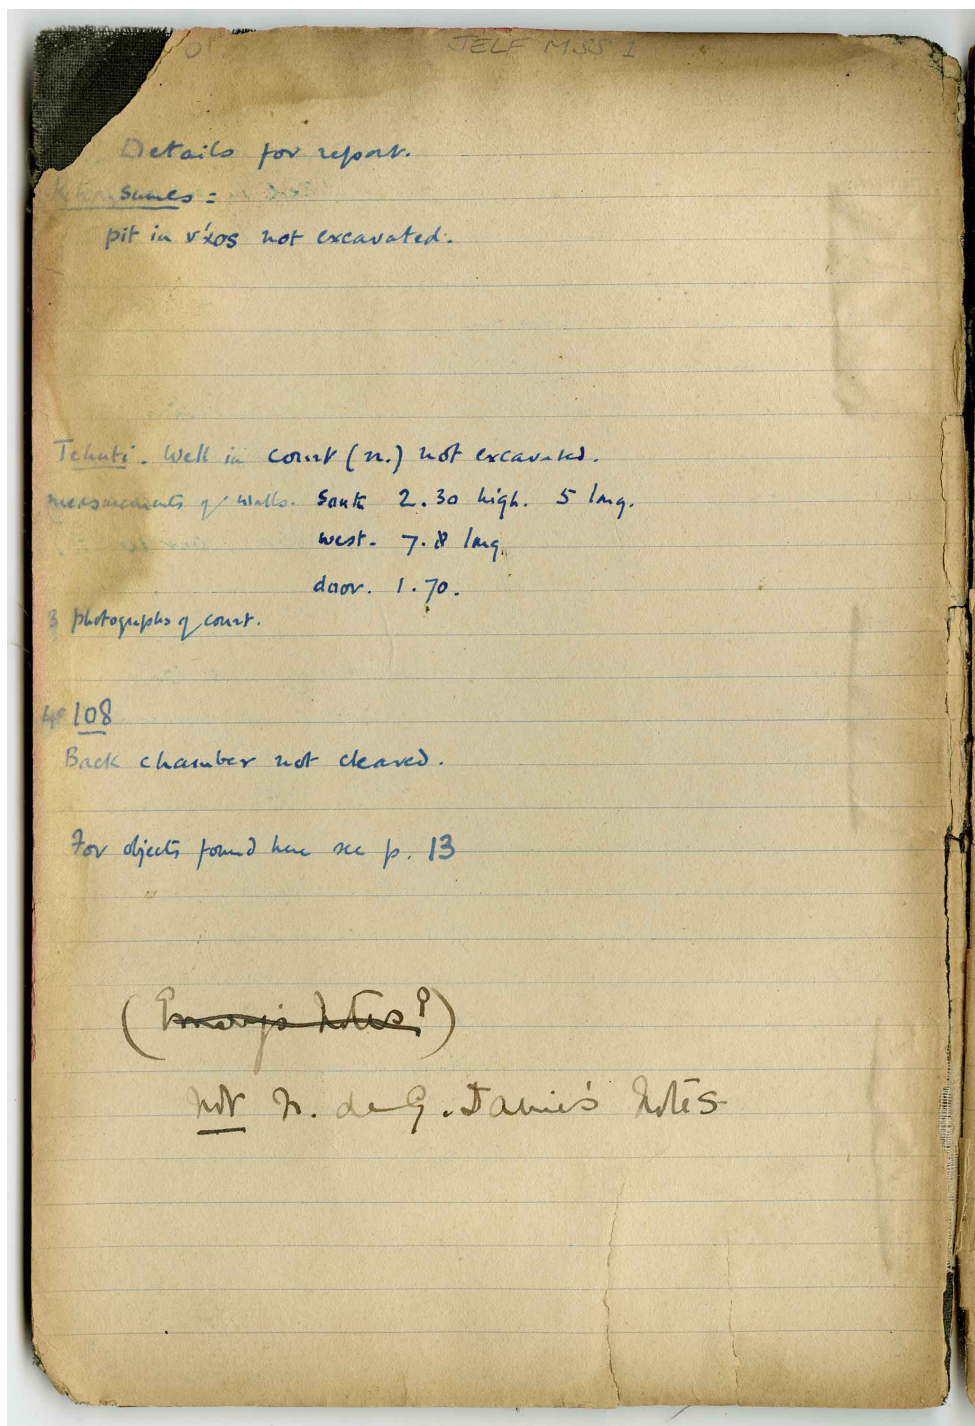 JELF MSS 1
Details for report.
pit in v'xos not excavated.
Tehuti. Well in court (n.) not excavated.
measurements of walls. South 2.30 high. 5 long.
west. 7.8 long
door. 1.70.
3 photographs of court.
108
Back chamber not cleared.
For objects found here see p. 13
(Emery's Notes?)
not N. de G. Davies Notes